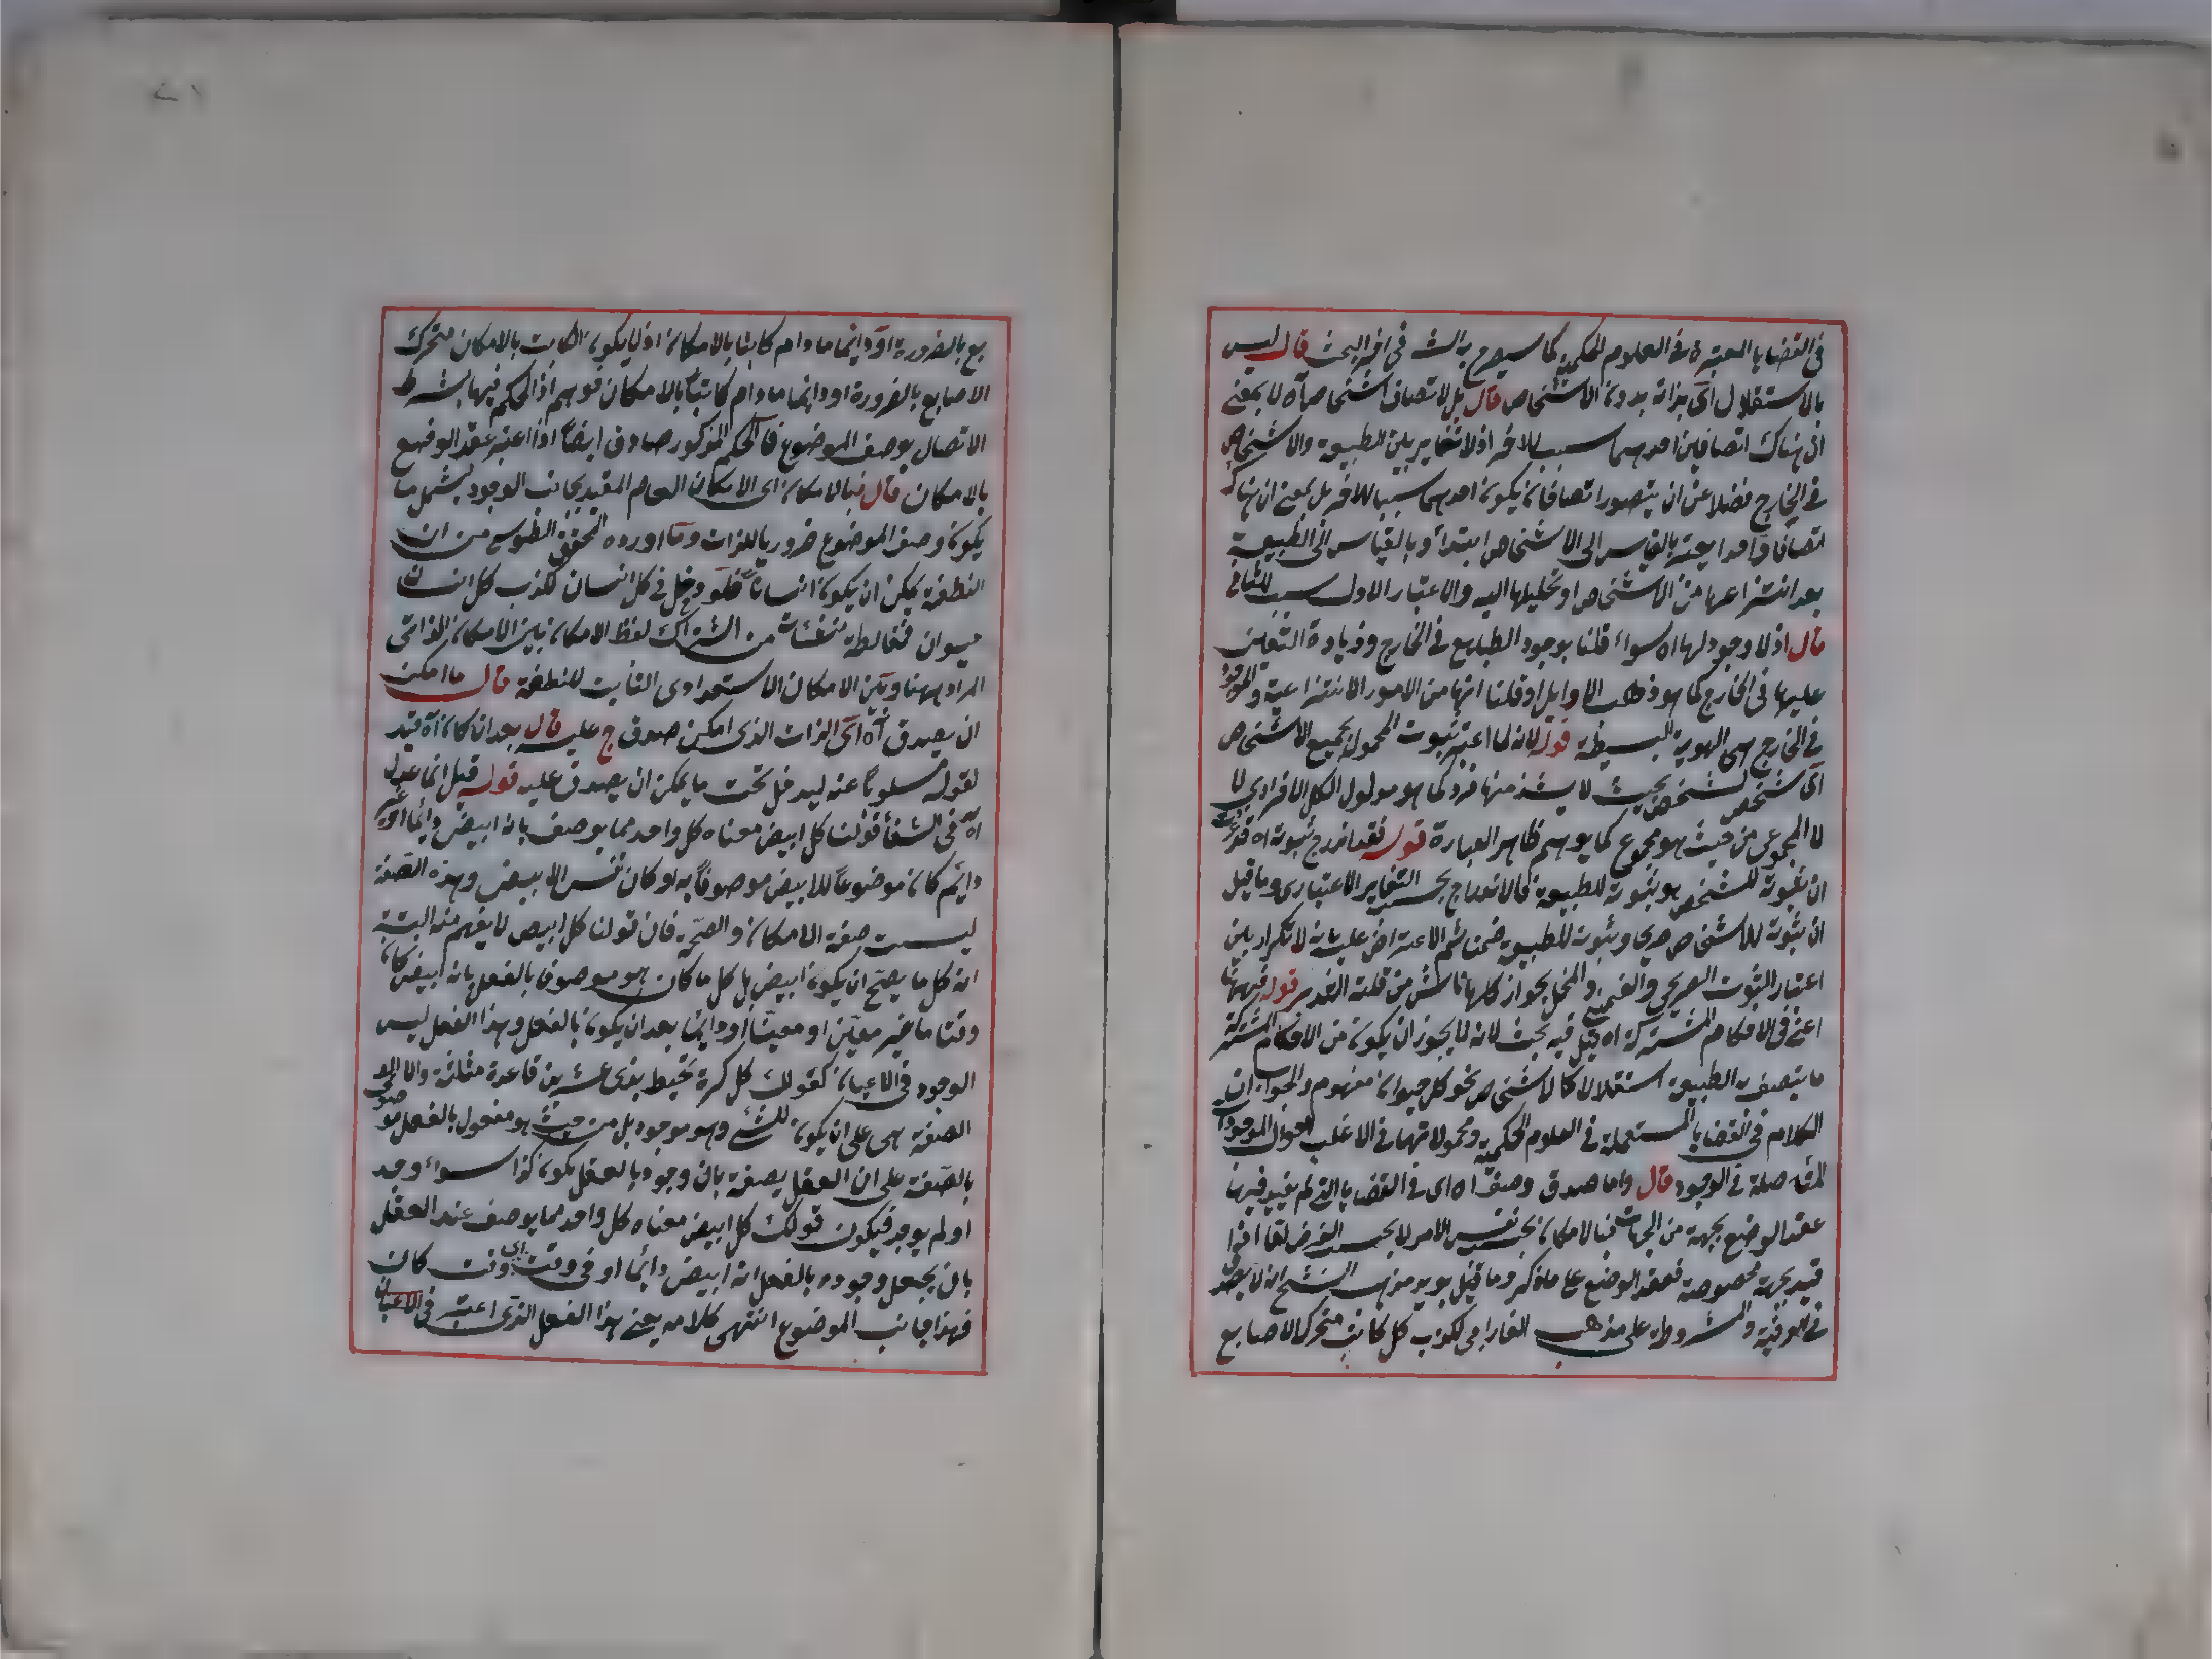 في القضايا المعتبرة في العلوم الحكمية كما سيصرح به الش في اخر البحث قال ليس
بالاستقلال اى بذاته بدون الاشخاص قال بل لاتصاف اشخاص اه لا بمعنى
ان هناك اتصافين احدهما سبب للاخر اذ لا تغاير بين الطبيعة والاشخاص
في الخارج فضلا عن ان يتصور اتصافان يكون احدهما سببا للاخر بل بمعنى ان هناك
اتصافا واحدا يعتبر بالقياس الى الاشخاص ابتداء وبالقياس الى الطبيعة
بعد انتزاعها من الاشخاص او تحليلها اليه والاعتبار الاول سبب للثاني
قال اذ لا وجود لها اه سواء قلنا بوجود الطبايع في الخارج وزيادة التعين
عليها في الخارج كما هو مذهب الاوايل او قلنا انها من الامور الانتزاعية والموجود
في الخارج هي الهوية البسيطة قوله لانه لما اعتبر ثبوت المحمول لجميع الاشخاص
اى شخص شخص بحيث لا يشذ منها فرد كما هو مدلول الكل الافرادي لا
لا المجموعي من حيث هو مجموع كما يوهم ظاهر العبارة قوله فقد اندرج ثبوته اه قد عرفت
ان ثبوته للشخص هو ثبوته للطبيعة فالاندراج بحسب التغاير الاعتباري وما قيل
ان ثبوته للاشخاص صريحي وثبوته للطبيعة ضمنا ثم الاعتراض عليه بانه لا تكرار بين
اعتبار الثبوت الصريحي والضمني والمخل بجواز كلها ناش من قلة التدبر قوله فيهنا
اعني في الاحكام المشتركة اه قيل فيه بحث لانه لم لا يجوز ان يكون من الاحكام المشتركة
ما يتصف به الطبيعة استقلالا كالاشخاص نحو كل حيوان مفهوم والجواب ان
الكلام في القضايا المستعملة في العلوم الحكمية ومحمولاتها في الاغلب احوال الموجودات
المتاصلة في الوجود قال واما صدق وصف اه اى في القضايا التي لم يقيد فيها
عقد الوضع بجهة من الجهات فبالامكان بحسب نفس الامر لا بحسب الفرض
قيد بجهة مخصوصة فعقد الوضع على ما ذكر وما قيل يويد مذهب الشيخ انه لا يصدق
في العرفية والمشروطة على مذهب الفارابي لكذب كل كاتب متحرك الاصابع
بع بالضرورة او دايما ما دام كاتبا بالامكان اذ لا يكون الكاتب بالامكان متحرك
الاصابع بالضرورة او دايما ما دام كاتبا بالامكان فوهم اذ الحكم فيها بشرط
الاتصال بوصف الموضوع فالحكم المذكور صادق ايضا اذا اعتبر عقد الوضع
بالامكان قال فبالامكان اى الامكان العام المقيد بجانب الوجود ليشمل ما
يكون وصف الموضوع ضروريا للذات وما اورده المحقق الطوسي من ان
النطفة يمكن ان يكون انسانا فلو دخل في كل انسان لكذب كل انسان
حيوان فمغالطة نشأت من اشتراك لفظ الامكان بين الامكان الذاتي
المراد ههنا وبين الامكان الاستعدادي الثابت للنطفة قال ما امكن
ان يصدق اه اى الذات الذي امكن صدق ج عليه قال بعد ان كان اه قيد
لقوله مسلوبا عنه ليدخل تحت ما يمكن ان يصدق عليه قوله قيل انما عدل
اه في الشفا قولنا كل ابيض معناه كل واحد مما يوصف بانه ابيض دائما او غير
دايم كان موضوعا للابيض موصوفا به او كان نفس الابيض وهذه الصفة
ليست صفة الامكان والصحة فان قولنا كل ابيض لا يفهم منه البتة
انه كل ما يصح ان يكون ابيض بل كل ما كان هو موصوفا بالفعل بانه ابيض كان
وقتا ما غير معين او معينا او دايما بعد ان يكون بالفعل وهذا الفعل ليس
الوجود في الاعيان كقولك كل كرة تحيط بذي عشرين قاعدة مثلثة والا
الصفة هي على ان يكون للشيء وهو موجود بل من حيث هو معقول بالفعل موصوف
بالصفة على ان العقل يصفه بان وجوده بالعقل يكون كذا سواء وجد
او لم يوجد فيكون قولك كل ابيض معناه كل واحد مما يوصف عند العقل
بان يجعل وجوده بالفعل انه ابيض دائما او في وقت اى وقت كان
فهذا جانب الموضوع انتهى كلامه يعني هذا الفعل الذي اعتبر في الاعيان